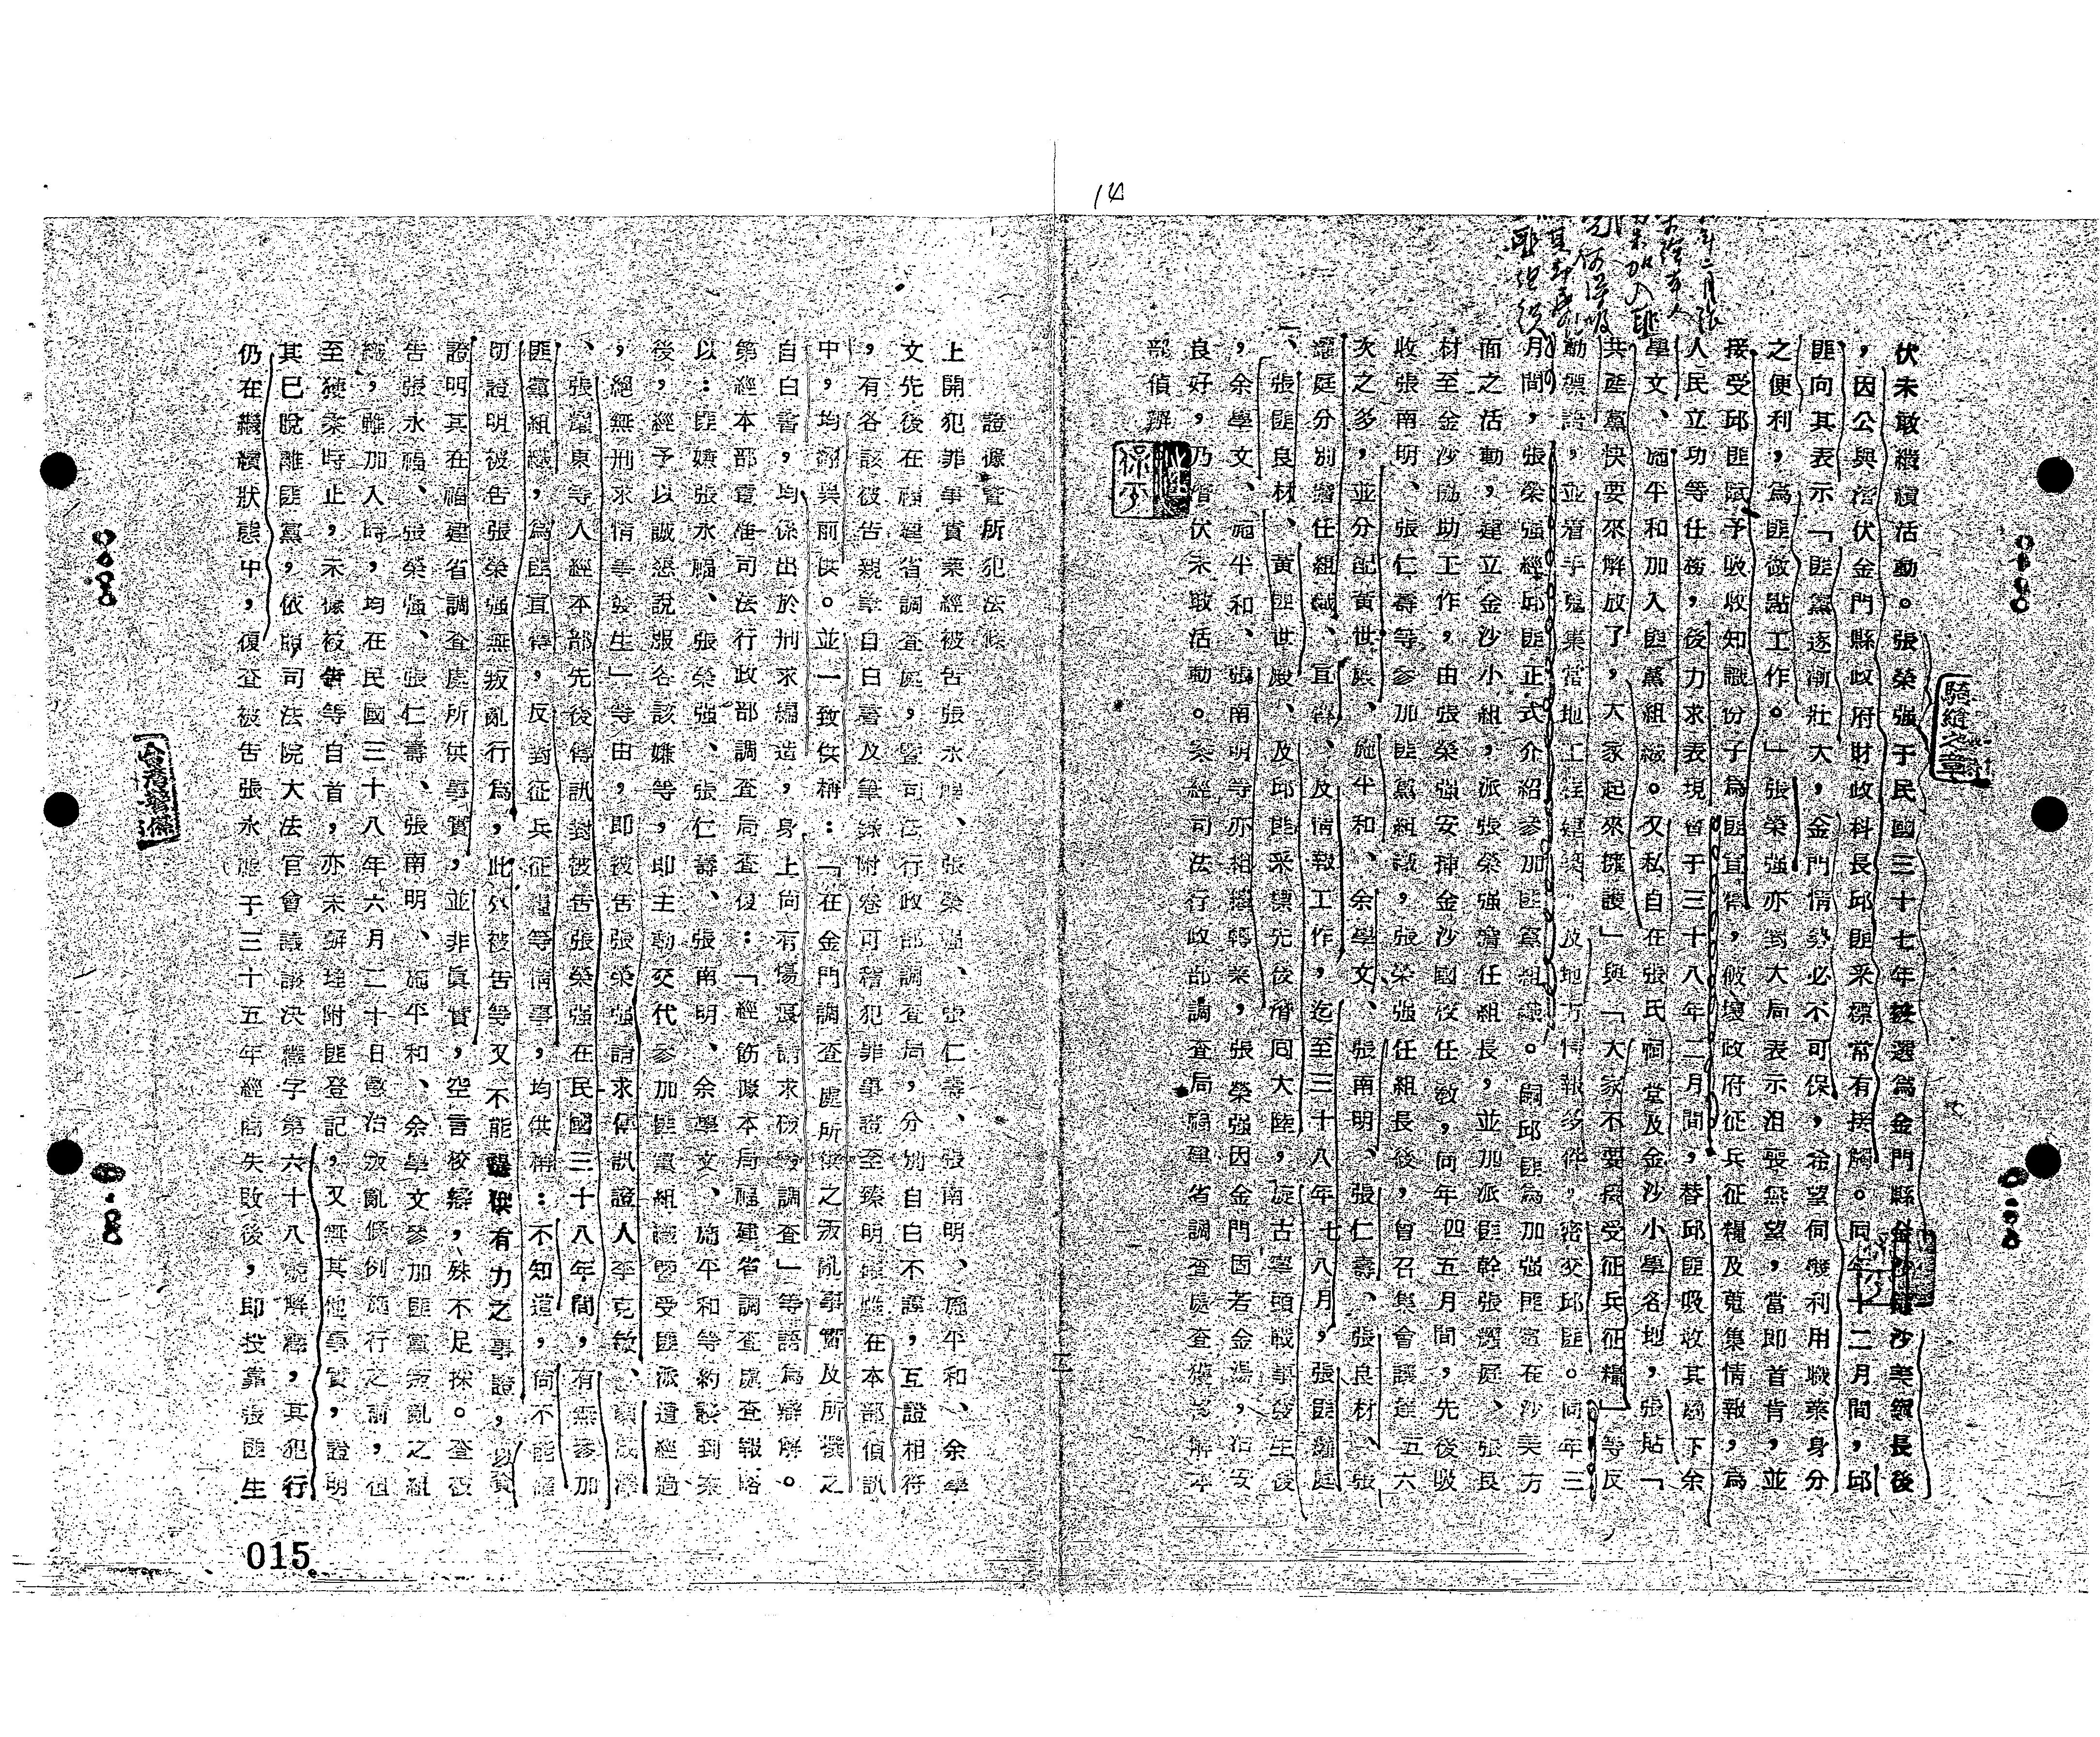 14
伏未敢繼續活動。張榮强于民國三十七年接選為金門縣金沙鎮沙美鎮長後
，因公與潛伏金門縣政府財政科長邱匪采標常有接觸。同年十二月間，邱
匪向其表示「匪黨逐漸壯大，金門情勢必不可保，希望伺機利用職業身分
之便利，為匪做點工作。」張榮强亦鑒大局表示沮喪無望，當即首肯，並
接受邱匪賦予吸收知識份子為匪宣傳，破壞政府征兵征糧及蒐集情報，為
人民立功等任務，後力求表現曾于三十八年二月間，替邱匪吸收其屬下余
學文、施平和加入匪黨組織。又私自在張氏祠堂及金沙小學各地，張貼「
共產黨快要來解放了，大家起來擁護」與「大家不要接受征兵征糧」等反
動標語，並着手蒐集當地工程建築，及地方情報多件，密交邱匪。同年三
月間，張榮强經邱匪正式介紹參加匪黨組織。嗣邱匪為加强匪黨在沙美方
面之活動，建立金沙小組，派張榮强擔任組長，並加派匪幹張耀庭、張良
材至金沙協助工作，由張榮强安挿金沙國校任教，同年四五月間，先後吸
收張南明、張仁壽等參加匪黨組織，張榮强任組長後，曾召集會議達五六
次之多，並分配黃世啟、施平和、余學文、張南明、張仁壽、張良材、張
耀庭分別擔任組織、宣傳、及情報工作，迄至三十八年七八月，張匪耀庭
、張匪良材、黃匪世啟、及邱匪采標先後潛回大陸，旋古寧頭戰爭發生後
，余學文、施平和、張南明等亦相繼轉業，張榮强因金門固若金湯，治安
良好，乃潛伏未敢活動。案經司法行政部調查局福建省調查處查獲移解本
部偵辦
證據並所犯法條
上開犯罪事實業經被告張永福、張榮强、張仁壽、張南明、施平和、余學
文先後在福建省調查處，暨司法行政部調查局，分別自白不諱，互證相符
，有各該被告親筆自白書及筆錄附卷可稽犯罪事證至臻明確雖在本部偵訊
中，均翻異前供。並一致供稱：「在金門調查處所供之叛亂事實及所撰之
自白書，均係出於刑求編造，身上尚有傷痕請求檢驗調查」等語為辯解。
第經本部電准司法行政部調查局查復：「經飭據本局福建省調查處查報略
以：匪嫌張永福、張榮强、張仁壽、張南明、余學文、施平和等約談到案
後，經予以誠懇說服各該嫌等，即主動交代參加匪黨組織暨受匪派遣經過
，絕無刑求情事發生」等由，即被告張榮强請求傳訊證人李克敏、
、張耀東等人經本部先後傳訊對被告張榮强在民國三十八年間，有無參加
匪黨組織，為匪宣傳，反對征兵征糧等情事，均供稱：不知道，尚不能證
切證明被告張榮强無叛亂行為，此外被告等又不能提供有力之事證，以資
證明其在福建省調查處所供事實，並非真實，空言狡辯，殊不足採。查被
告張永福、張榮强、張仁壽、張南明、施平和、余學文參加匪黨叛亂之組
織，雖加入時，均在民國三十八年六月二十日懲治叛亂條例施行之前，但
至破案時止，未據被告等自首，亦未辦理附匪登記，又無其他事實，證明
其已脫離匪黨，依照司法院大法官會議議決釋字第六十八號解釋，其犯行
仍在繼續狀態中，復查被告張永福于三十五年經商失敗後，即投靠張匪生
015